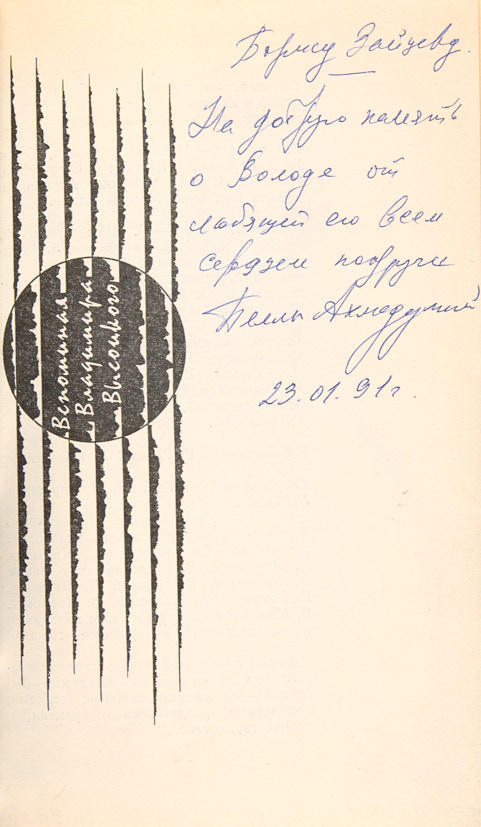 Борису Зайцеву.
На добрую память
о Володе от
любящей его всем
сердцем подруги
Беллы Ахмадулиной
23.01.91г.
Вспоминая
Владимира
Высоцкого